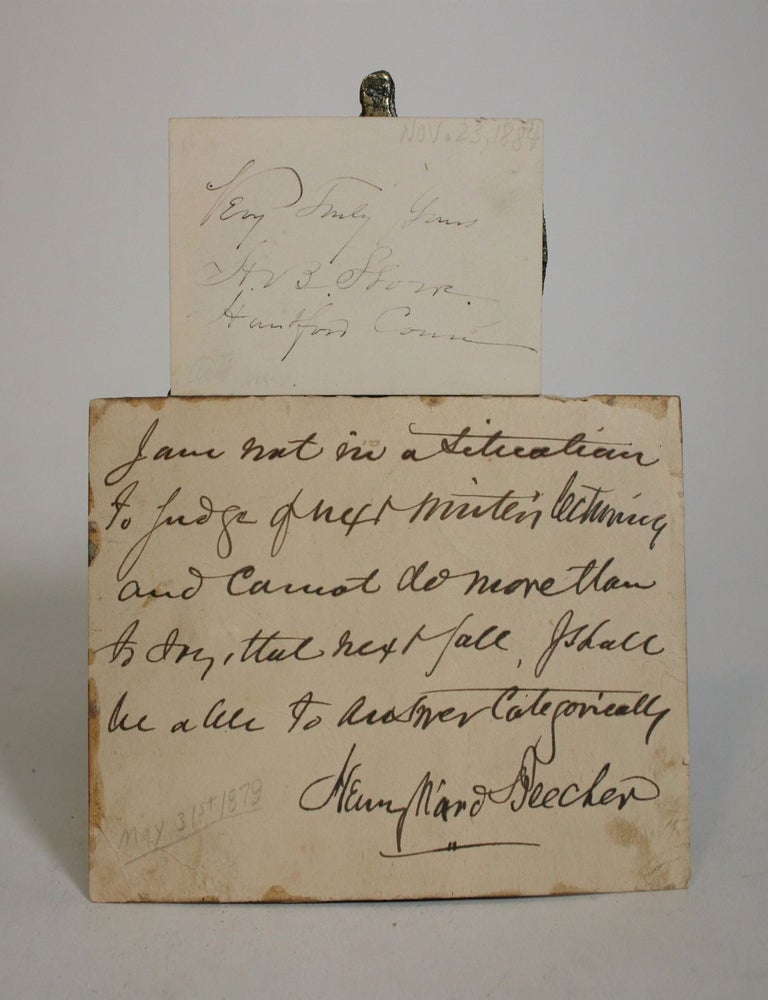 NOV. 23, 1884
Very Truly Yours
H. B. Stowe.
Hartford Conn
I am not in a situation
to judge of next winter's lecturing
and cannot do more than
to say, that next fall, I shall
be able to answer Categorically
Henry Ward Beecher
May 31st 1879